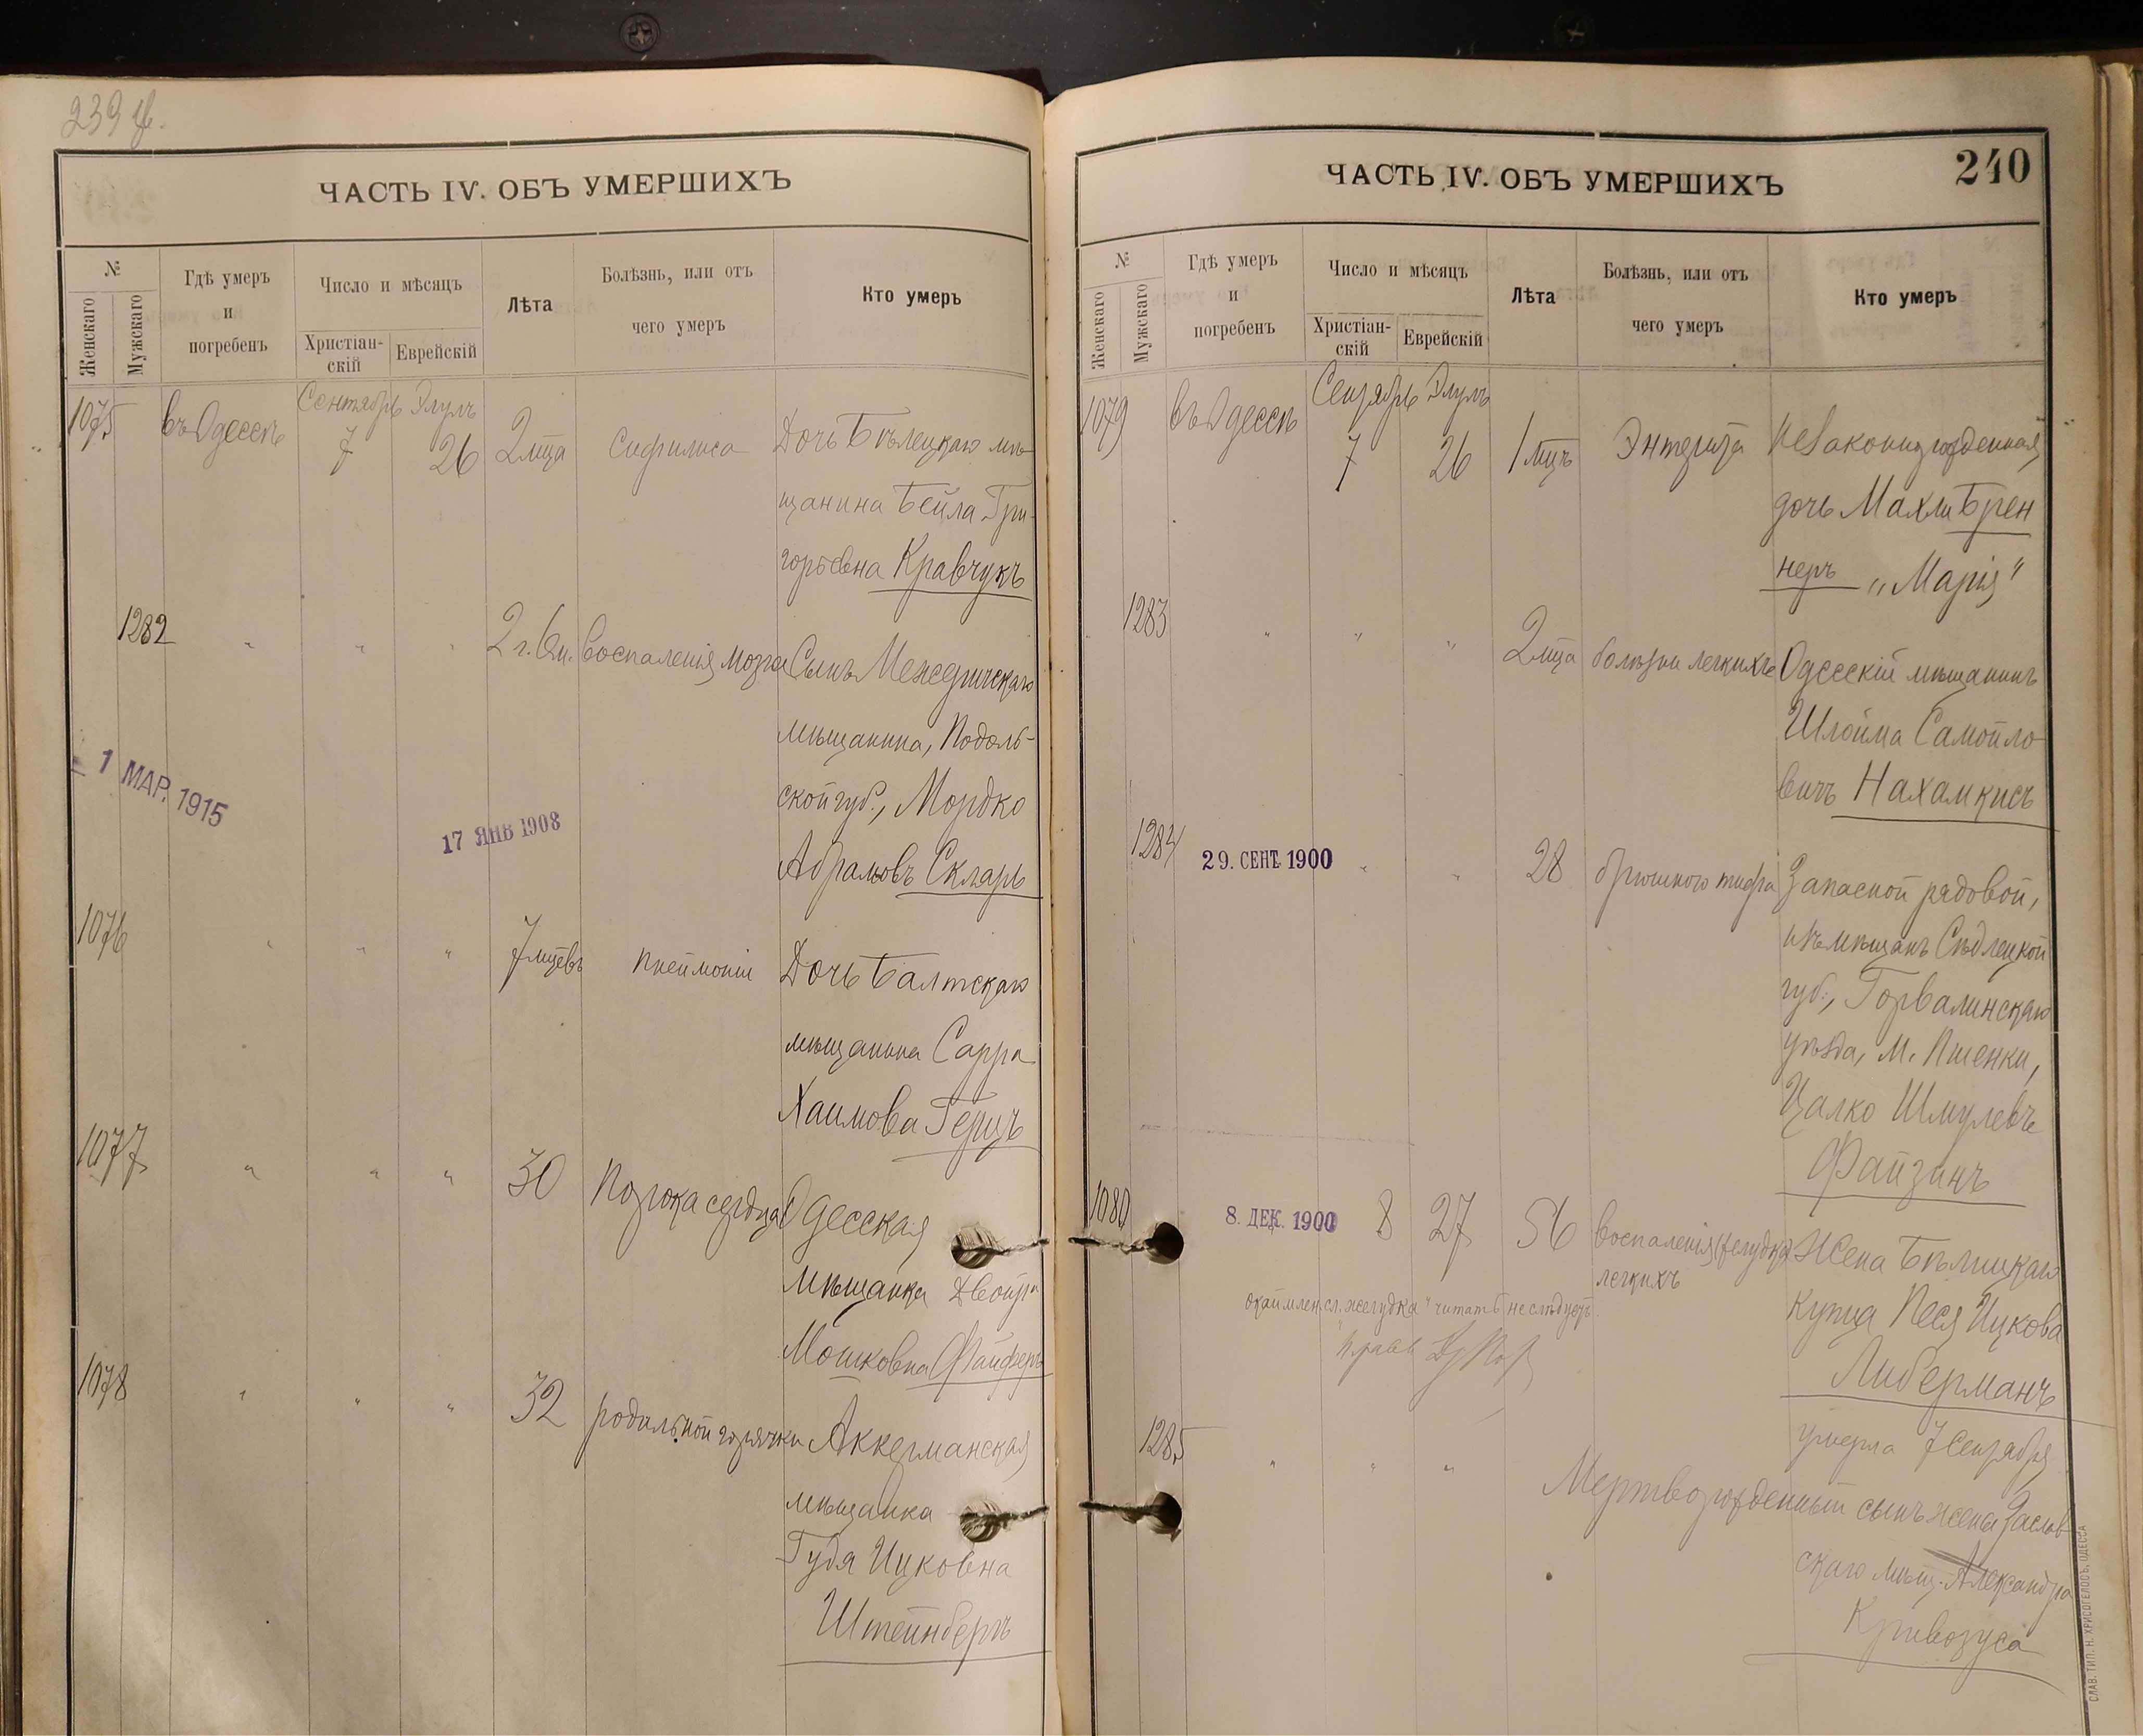 239 об.
ЧАСТЬ IV. ОБЪ УМЕРШИХЪ
№
Женскаго
Мужскаго
Гдѣ умеръ
и
погребенъ
Число и мѣсяцъ
Христіан-
скій
Еврейскій
Лѣта
Болѣзнь, или отъ
чего умеръ
Кто умеръ
Сентябрь Элулъ
1075 въ Одессѣ 7 26 2 мца Сифилиса Дочь Бѣлецкаго мѣ-
щанина Бейла Гри-
горьевна Кравчукъ
1282 " " " 2 г. 6 м. Воспаленія мозга Сынъ
мѣщанина, Подоль-
ской губ., Мордко
Абрамовъ Скляръ
1 МАР. 1915
17 ЯНВ 1908
1076 " " " 7 мцевъ Пнеймоніи Дочь Балтскаго
мѣщанина Сарра
Хаимова Герцъ
1077 " " " 30 Порока сердца Одесская
мѣщанка Двойра
Мошковна Файферъ
1078 " " " 32 родильной горячки Аккерманская
мѣщанка
Гудя Ицковна
Штейнбергъ
240
ЧАСТЬ IV. ОБЪ УМЕРШИХЪ
№
Женскаго
Мужскаго
Гдѣ умеръ
и
погребенъ
Число и мѣсяцъ
Христіан-
скій
Еврейскій
Лѣта
Болѣзнь, или отъ
чего умеръ
Кто умеръ
Сентябрь Элулъ
1079 въ Одессѣ 7 26 1 мцъ Энтерита Незаконнорожденная
дочь Махли Брен
неръ „Марія"
1283 " " " 2 мца болѣзни легкихъ Одесскій мѣщанинъ
Шлойма Самойло-
вичъ Нахамкисъ
1284 29. СЕНТ. 1900 " " 28 брюшного тифа Запасной рядовой,
изъ мѣщанъ Сѣдлецкой
губ., Горвалинскаго
уѣзда, м. Пшенки,
Цалко Шмулевъ
Файзанъ
1080 8. ДЕК. 1900 8 27 56 воспаленія (желудка) Жена Бѣлицкаго
легкихъ
купца Песя Ицкова
Либерманъ
окаймлен. сл. „желудка" читать не слѣдуетъ.
умерла 7 Сентября
1285 " " " Мертворожденный сынъ жены Заслав-
скаго мѣщ. Александра
Криворуса
СЛАВ. ТИП. Н. ХРИСОГЕЛОСЪ, ОДЕССА